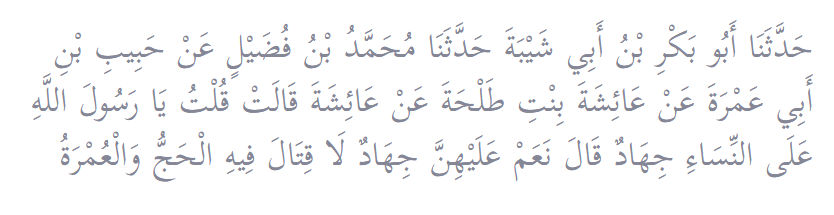 حَدَّثَنَا أَبُو بَكْرِ بْنُ أَبِي شَيْبَةَ حَدَّثَنَا مُحَمَّدُ بْنُ فُضَيْلٍ عَنْ حَبِيبِ بْنِ
أَبِي عَمْرَةَ عَنْ عَائِشَةَ بِنْتِ طَلْحَةَ عَنْ عَائِشَةَ قَالَتْ قُلْتُ يَا رَسُولَ اللَّهِ
عَلَى النِّسَاءِ جِهَادٌ قَالَ نَعَمْ عَلَيْهِنَّ جِهَادٌ لَا قِتَالَ فِيهِ الْحَجُّ وَالْعُمْرَةُ